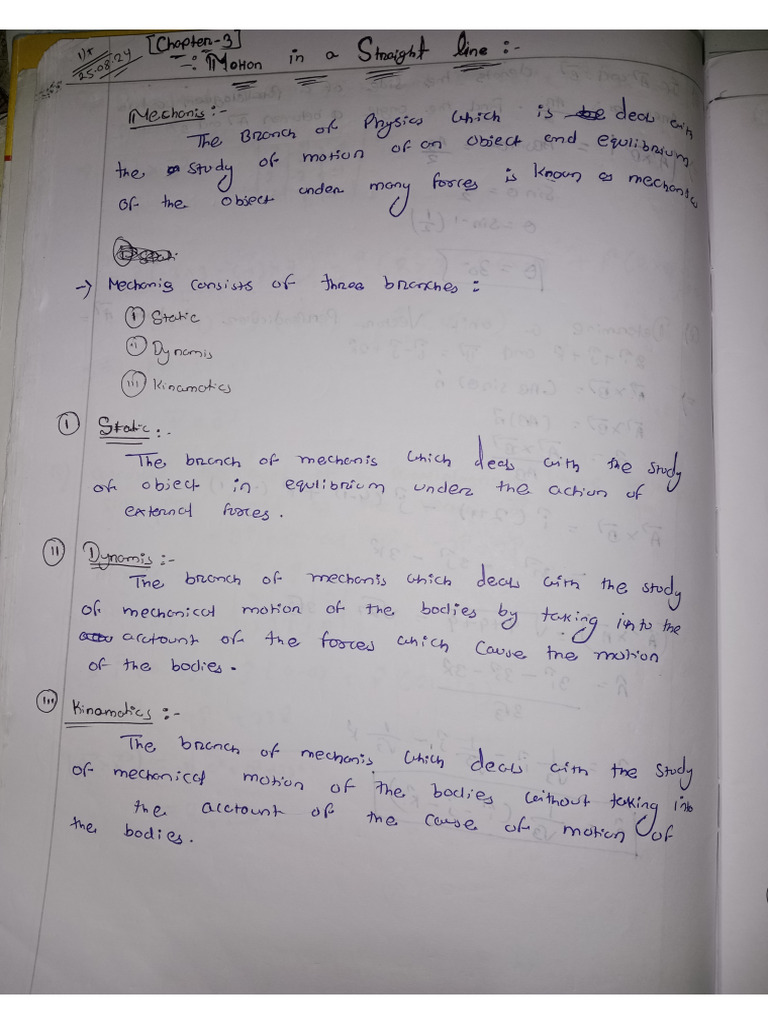 25.08.24
[Chapter-3]
-: Motion in a Straight line:-
Mechanis:-
The Branch of Physics which is deals with
the study of motion of an object and equlibrium
of the object under many forces is known as mechanics
-> Mechanis consists of three branches :
(i) Static
(ii) Dynamis
(iii) Kinamatics
(i) Static:-
The branch of mechanis which deals with the study
of object in equlibrium under the action of
external forces.
(ii) Dynamis:-
The branch of mechanis which deals with the study
of mechanical motion of the bodies by taking into the
account of the forces which cause the motion
of the bodies.
(iii) Kinamatics :-
The branch of mechanis which deals with the study
of mechanical motion of the bodies without taking into
the account of the cause of motion of
the bodies.